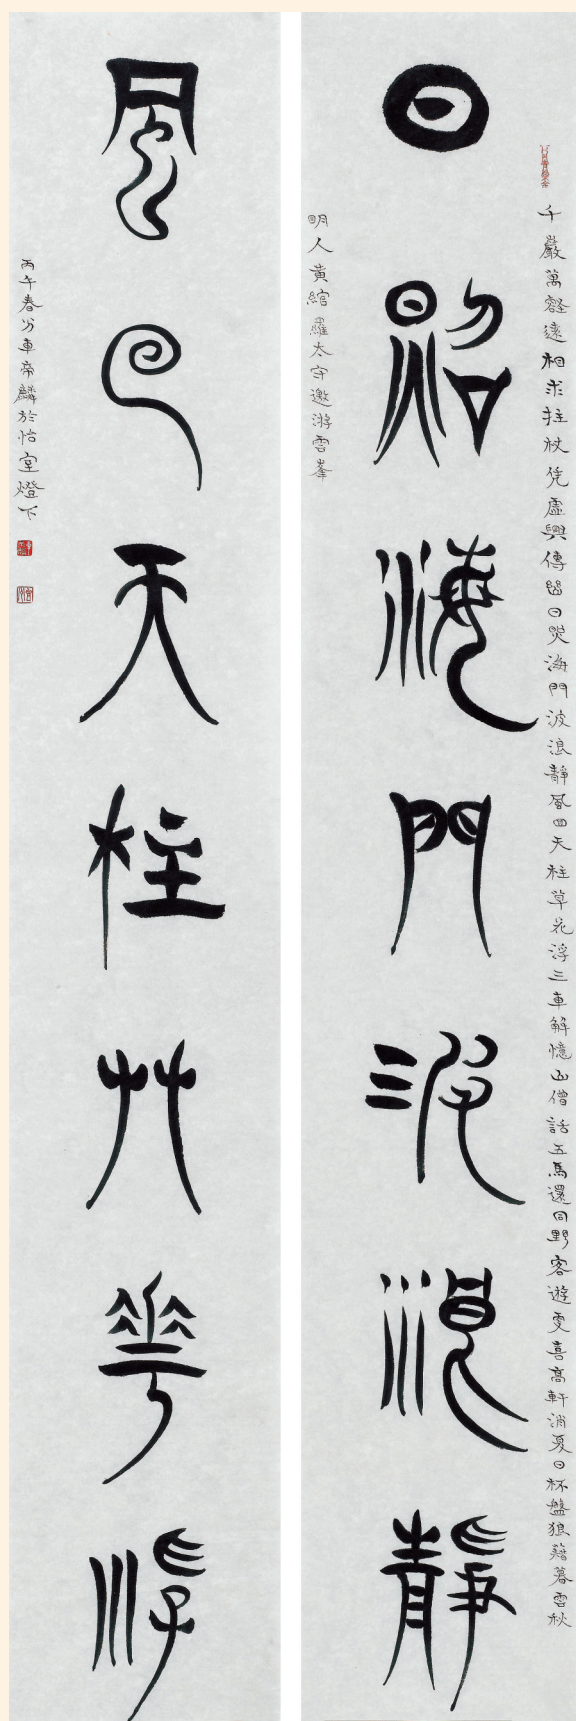 千巖萬壑遠相求拄杖凭虛興傳留日照海門波浪靜風回天柱草花浮三車解憶山僧話五馬還同野客遊更喜高軒消夏日杯盤狼藉暮雲秋
日照海門波浪靜
明人黃綰羅太守邀游雲峯
風回天柱艸華浮
丙午春分車帝麟於怡室燈下